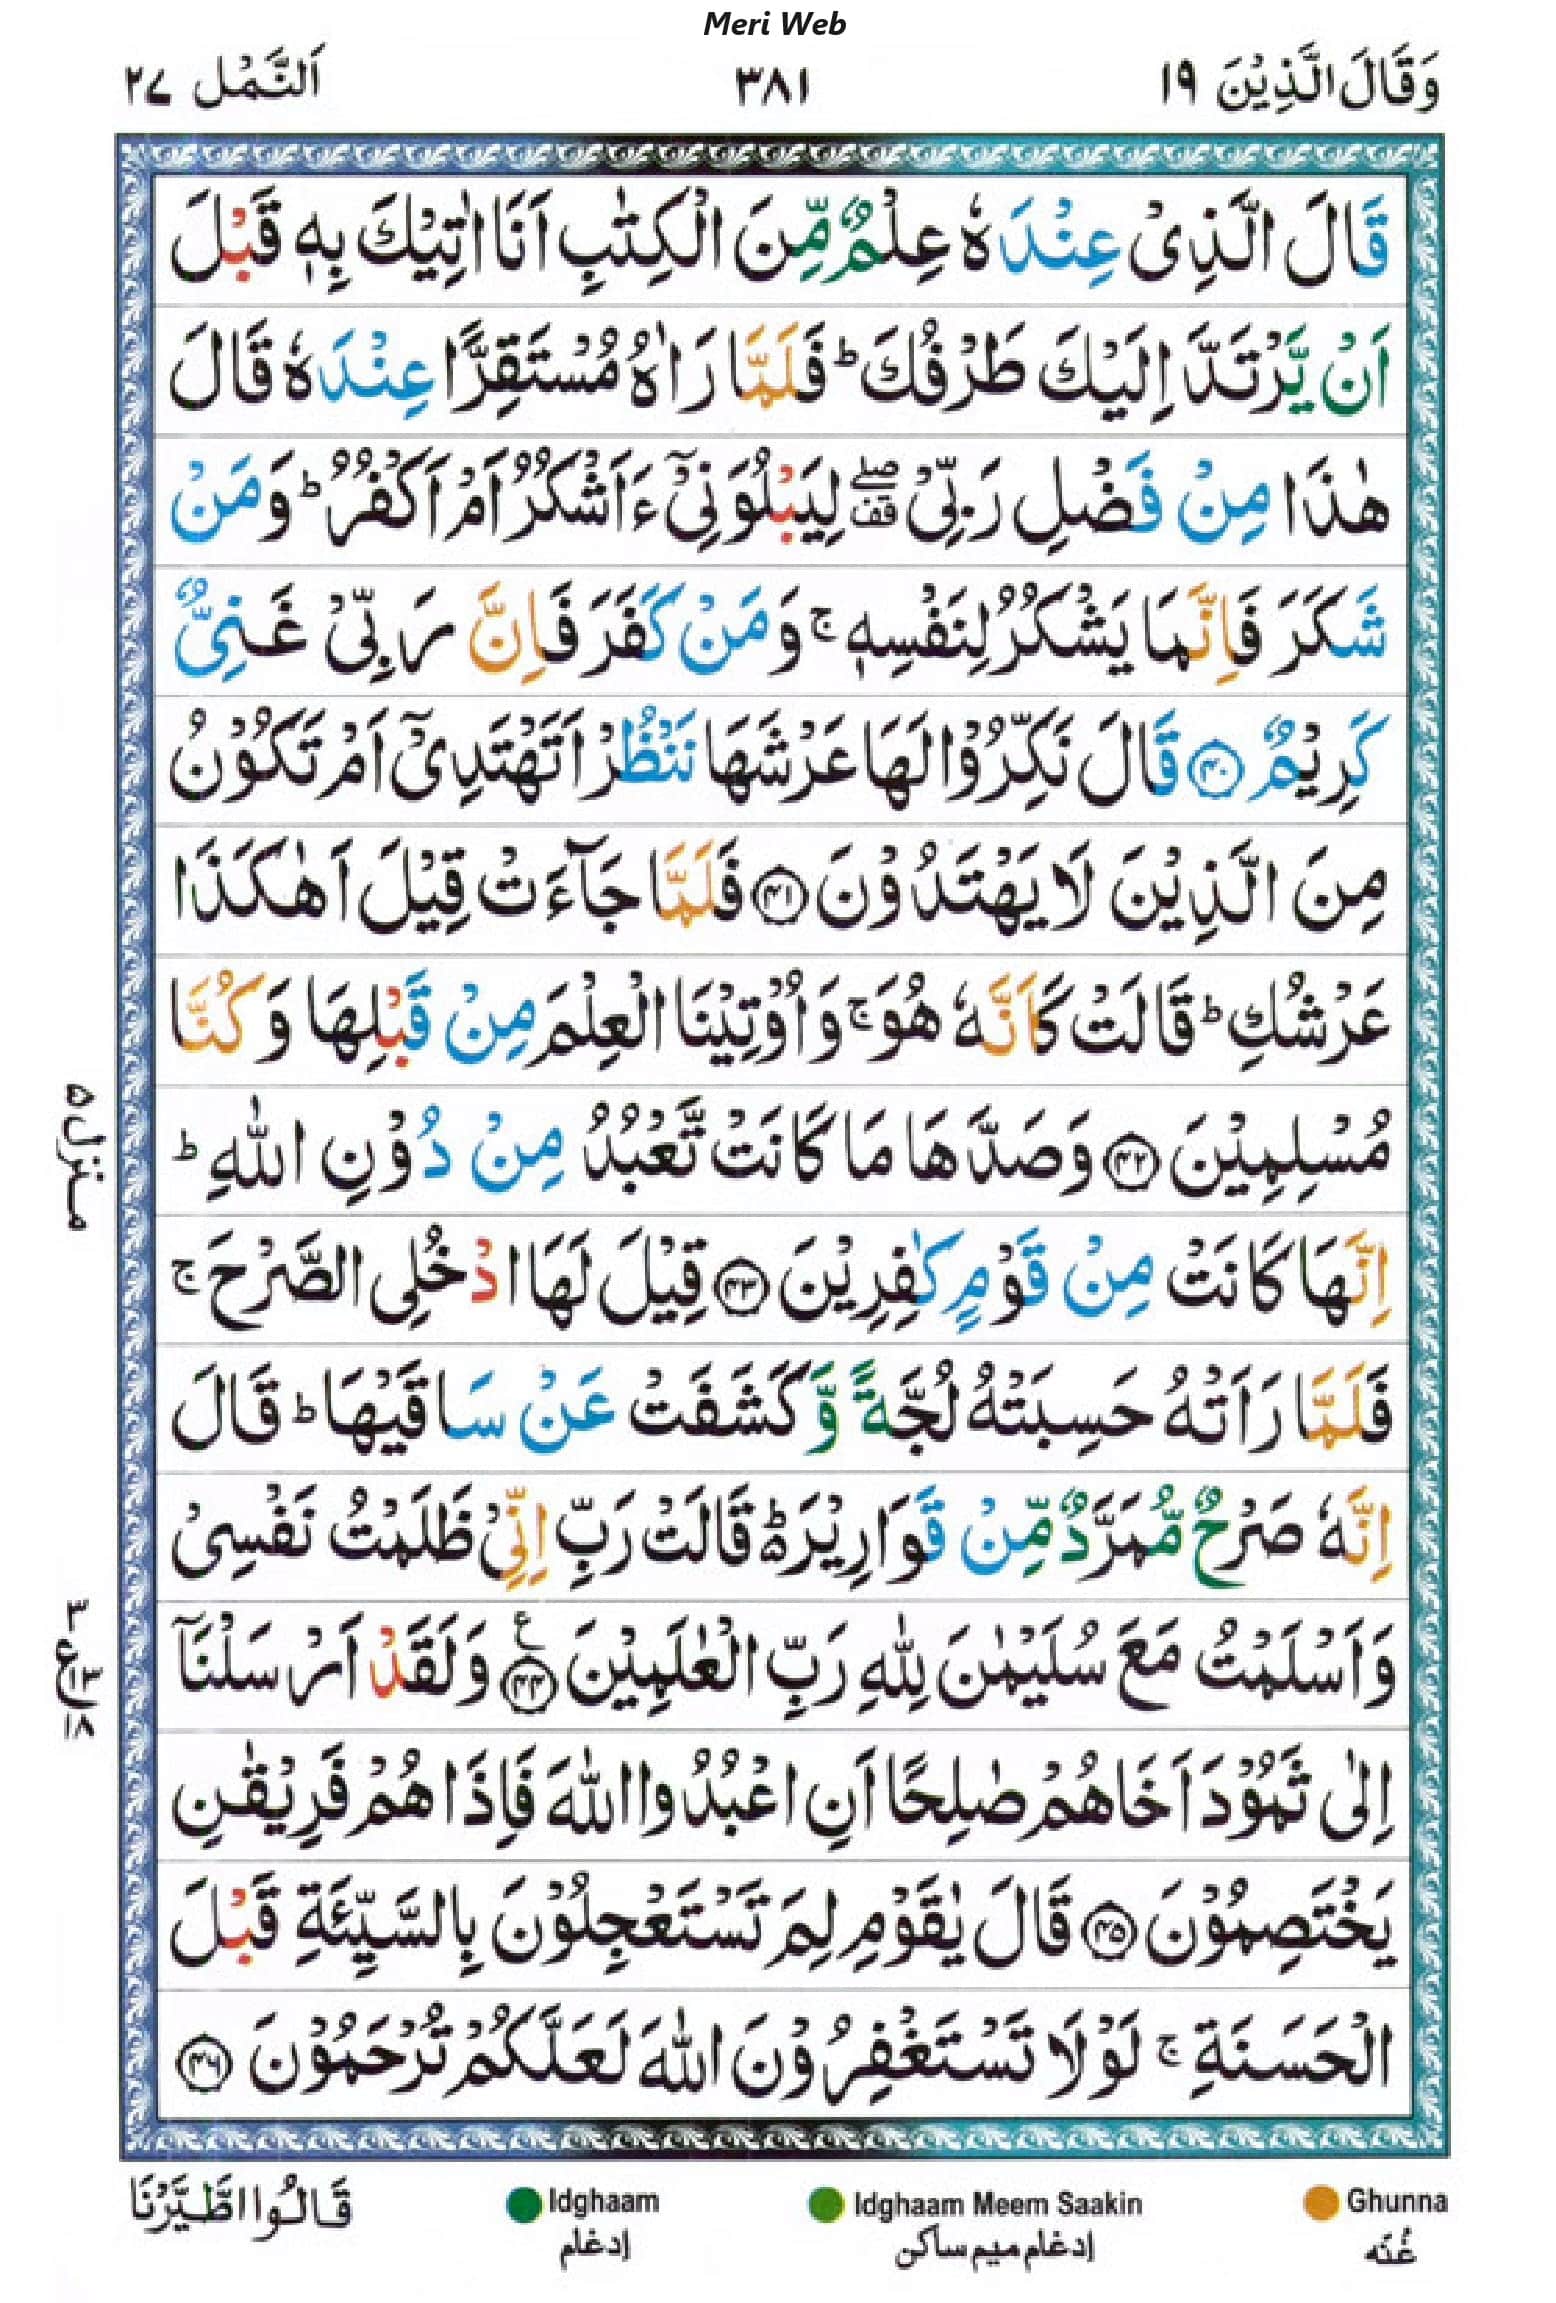 Meri Web
وَقَالَ الَّذِیْنَ ۱۹
۳۸۱
اَلنَّمْل ۲۷
قَالَ الَّذِیْ عِنْدَهٗ عِلْمٌ مِّنَ الْكِتٰبِ اَنَا اٰتِیْكَ بِهٖ قَبْلَ
اَنْ یَّرْتَدَّ اِلَیْكَ طَرْفُكَ ؕ فَلَمَّا رَاٰهُ مُسْتَقِرًّا عِنْدَهٗ قَالَ
هٰذَا مِنْ فَضْلِ رَبِّیْ ۖ۫ لِیَبْلُوَنِیْۤ ءَاَشْكُرُ اَمْ اَكْفُرُ ؕ وَمَنْ
شَكَرَ فَاِنَّمَا یَشْكُرُ لِنَفْسِهٖ ۚ وَمَنْ كَفَرَ فَاِنَّ رَبِّیْ غَنِیٌّ
كَرِیْمٌ ۴۰ قَالَ نَكِّرُوْا لَهَا عَرْشَهَا نَنْظُرْ اَتَهْتَدِیْۤ اَمْ تَكُوْنُ
مِنَ الَّذِیْنَ لَا یَهْتَدُوْنَ ۴۱ فَلَمَّا جَآءَتْ قِیْلَ اَهٰكَذَا
عَرْشُكِ ؕ قَالَتْ كَاَنَّهٗ هُوَ ۚ وَاُوْتِیْنَا الْعِلْمَ مِنْ قَبْلِهَا وَكُنَّا
مُسْلِمِیْنَ ۴۲ وَصَدَّهَا مَا كَانَتْ تَّعْبُدُ مِنْ دُوْنِ اللّٰهِ ؕ
اِنَّهَا كَانَتْ مِنْ قَوْمٍ كٰفِرِیْنَ ۴۳ قِیْلَ لَهَا ادْخُلِی الصَّرْحَ ۚ
فَلَمَّا رَاَتْهُ حَسِبَتْهُ لُجَّةً وَّكَشَفَتْ عَنْ سَاقَیْهَا ؕ قَالَ
اِنَّهٗ صَرْحٌ مُّمَرَّدٌ مِّنْ قَوَارِیْرَ ؕ۬ قَالَتْ رَبِّ اِنِّیْ ظَلَمْتُ نَفْسِیْ
وَاَسْلَمْتُ مَعَ سُلَیْمٰنَ لِلّٰهِ رَبِّ الْعٰلَمِیْنَ ۴۴ ع وَلَقَدْ اَرْسَلْنَاۤ
اِلٰی ثَمُوْدَ اَخَاهُمْ صٰلِحًا اَنِ اعْبُدُوا اللّٰهَ فَاِذَا هُمْ فَرِیْقٰنِ
یَخْتَصِمُوْنَ ۴۵ قَالَ یٰقَوْمِ لِمَ تَسْتَعْجِلُوْنَ بِالسَّیِّئَةِ قَبْلَ
الْحَسَنَةِ ۚ لَوْلَا تَسْتَغْفِرُوْنَ اللّٰهَ لَعَلَّكُمْ تُرْحَمُوْنَ ۴۶
منزل ۵
۳ ع ۱۸
قَالُوا اطَّیَّرْنَا
Idghaam
ادغام
Idghaam Meem Saakin
ادغام میم ساکن
Ghunna
غُنّه